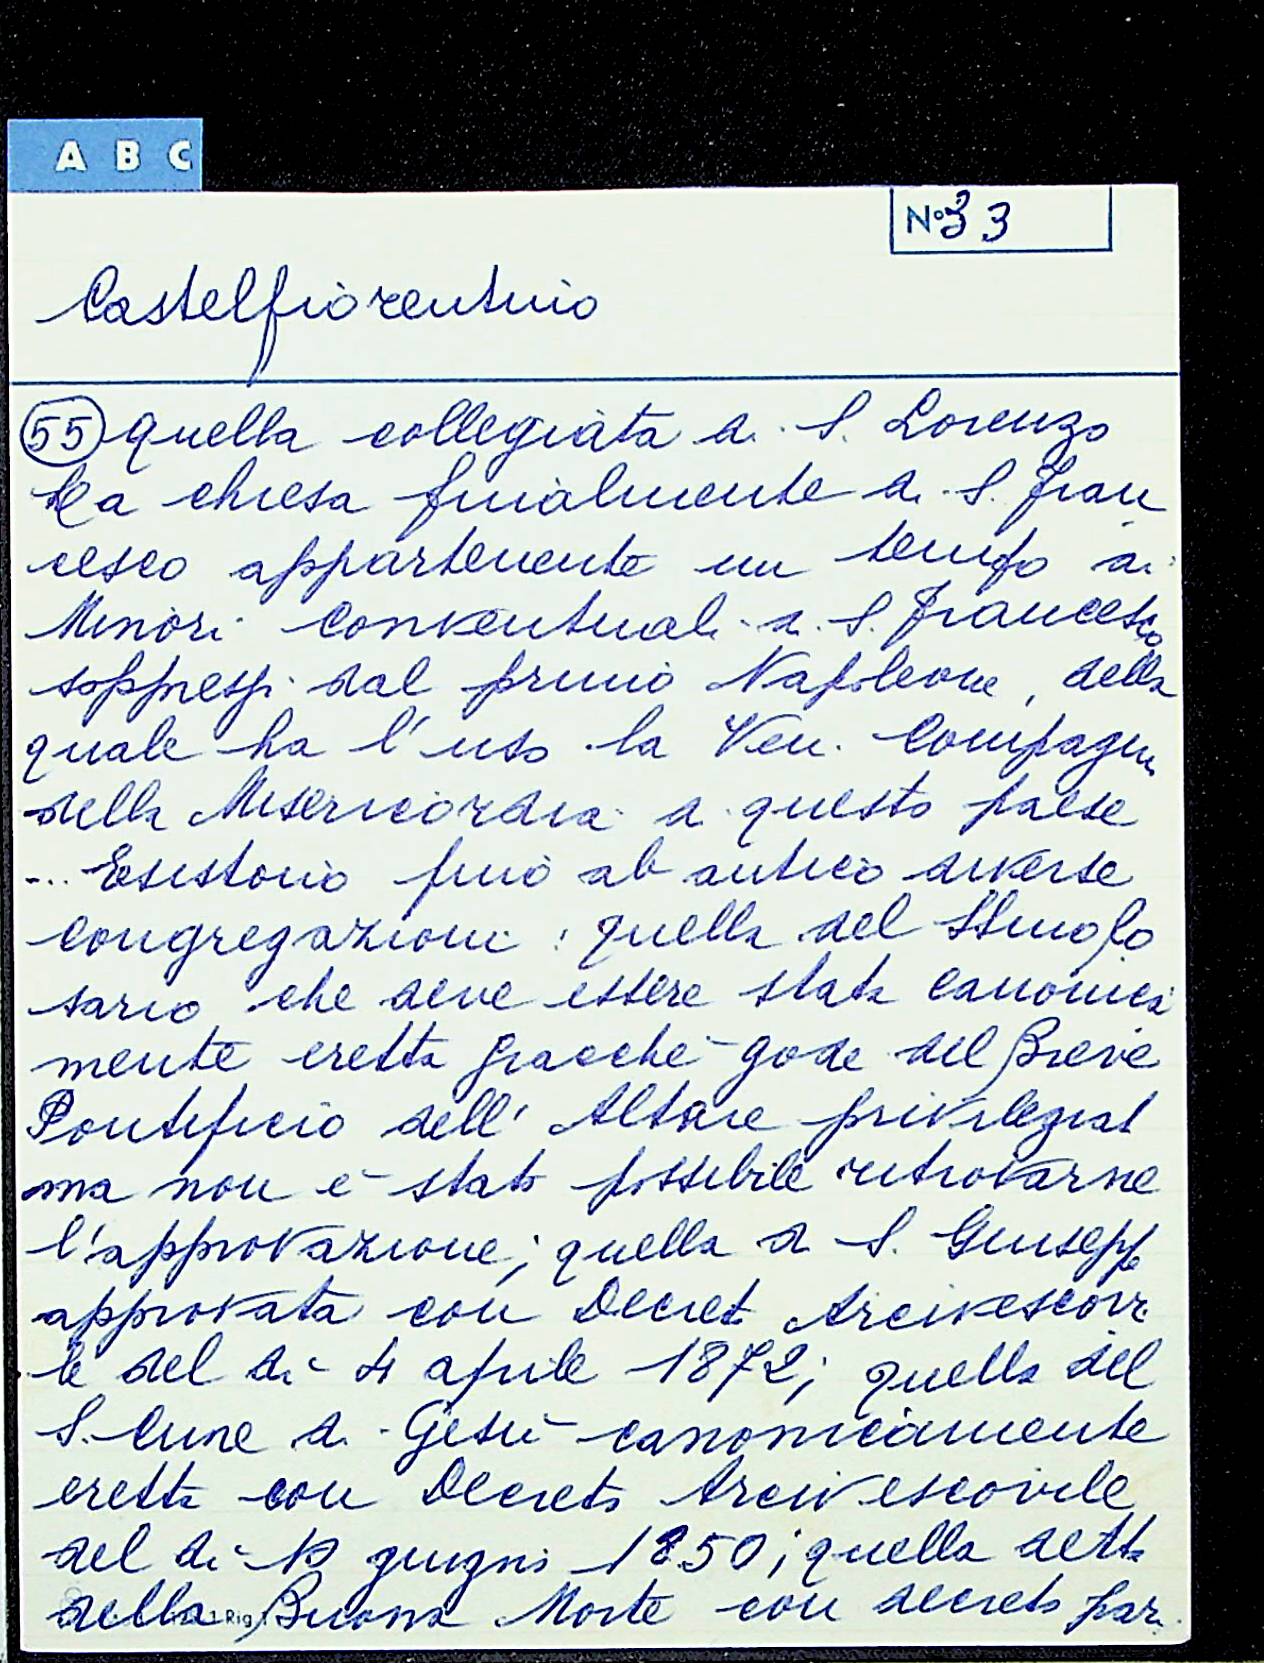 A B C
N° 33
Castelfiorentino
55 quella collegiata di S. Lorenzo
La chiesa finalmente di S. Fran
cesco appartenente un tempo ai
Minori Conventuali di S. Francesco
soppressi dal primo Napoleone, della
quale ha l'uso la Ven. Compagn
della Misericordia di questo paese
... Esistono fino ab antico diverse
congregazioni: quella del SSmo Ro
sario che deve essere stata canonica
mente eretta giacché gode del Breve
Pontificio dell'Altare privilegiat
ma non è stato possibile ritrovarne
l'approvazione; quella di S. Giusepp
approvata con Decreto Arcivescovi
le del dì 4 aprile 1872; quella del
S. Cuore di Gesù canonicamente
eretta con Decreto Arcivescovile
del dì giugno 1850; quella detta
della Buona Morte con decreto par
1 Rig